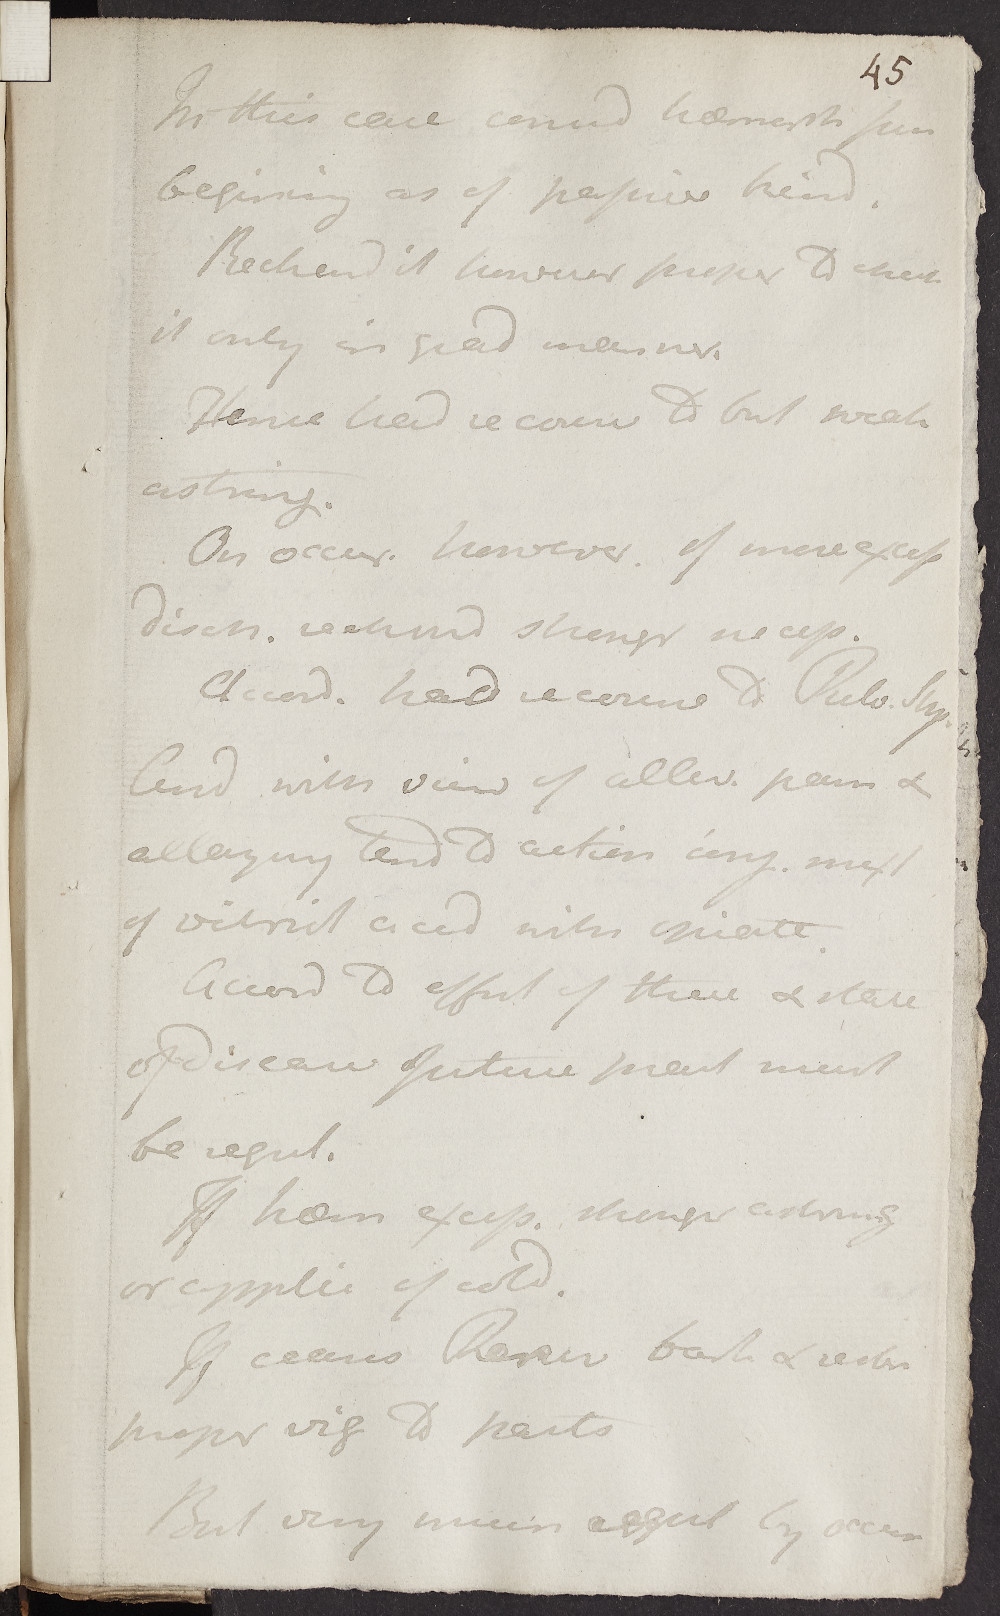 45
In this case consid hæmorrh from
begining as of passive kind.
Reckend it however proper to check
it only in grad manner.
Hence had recourse to but weak
astring.
On occur. however of more excess
disch. reckond stronger necess.
Accord. had recourse to Pulv. Styp.
And with view of allev. pain &
allaying tend to action conj. mixt
of vitriol acid with opiate.
Accord to effect of these & state
of disease future pract must
be regul.
If hæm excess. stronger astring
or applic of cold.
If ceases Peruv bark & restor
proper vig to parts
But very much regul by occur